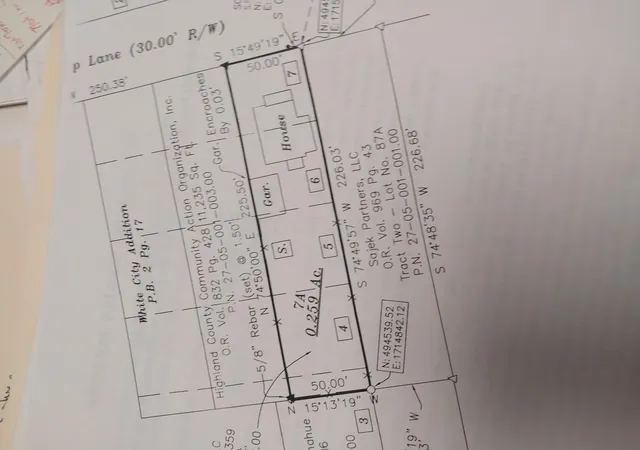 p Lane (30.00' R/W)
250.38'
S 15°49'19" E
50.00'
N:494
E:1715
7
House
Gar.
6
5
S.
4
3
7A
0.259 Ac.
White City Addition
P.B. 2 Pg. 17
Highland County Community Action Organization, Inc.
O.R. Vol. 832 Pg. 428 11,235 Sq. Ft.
P.N. 27-05-001-003.00
Gar. Encroaches
By 0.03'
5/8" Rebar (set) @ 1.50'
N 74°50'00" E 225.50'
S 74°49'57" W 226.03'
Sajek Partners, LLC
O.R. Vol. 969 Pg. 43
Tract Two - Lot No. 87A
P.N. 27-05-001-001.00
S 74°48'35" W 226.68'
N:494539.52
E:1714842.12
50.00'
N 15°13'19" W
nahue
00
19" W
3'
C
359
.00